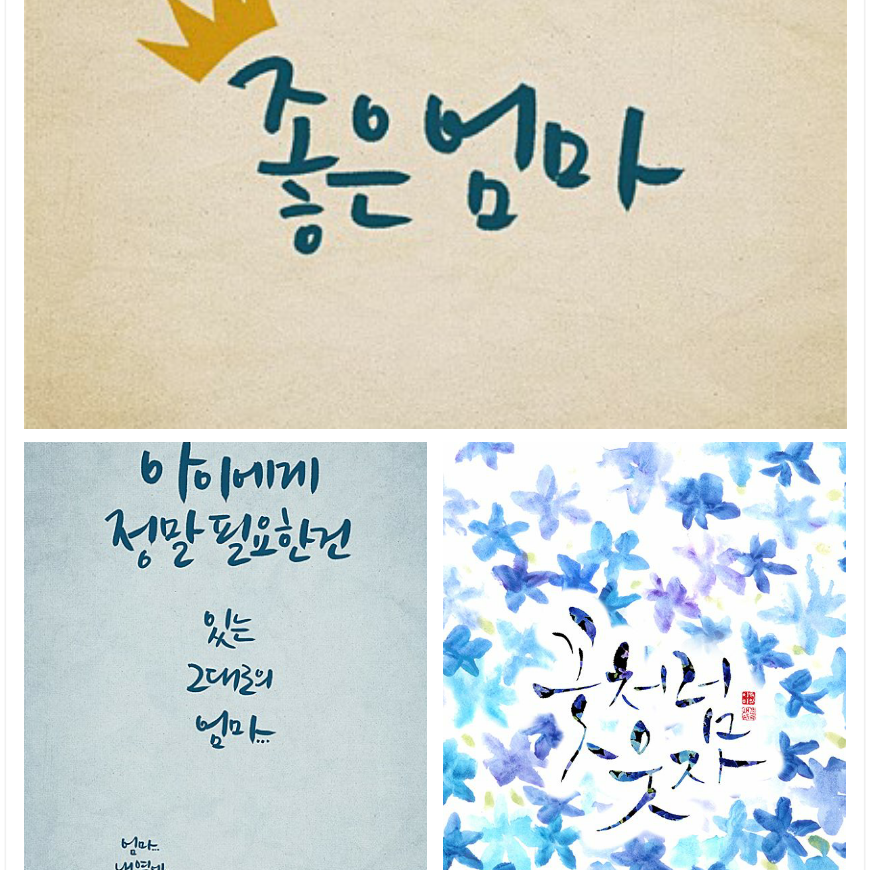 좋은 엄마
아이에게
정말 필요한 건
있는
그대로의
엄마...
엄마...
꽃처럼
웃자